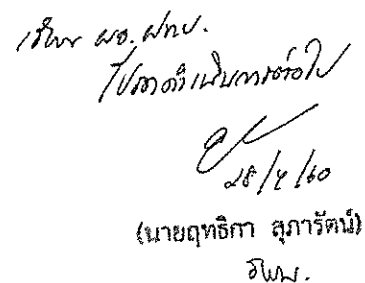 เรียน ผอ.ฝทป.
โปรดดำเนินการต่อไป
28/4/60
(นายฤทธิกา สุภารัตน์)
รผพ.